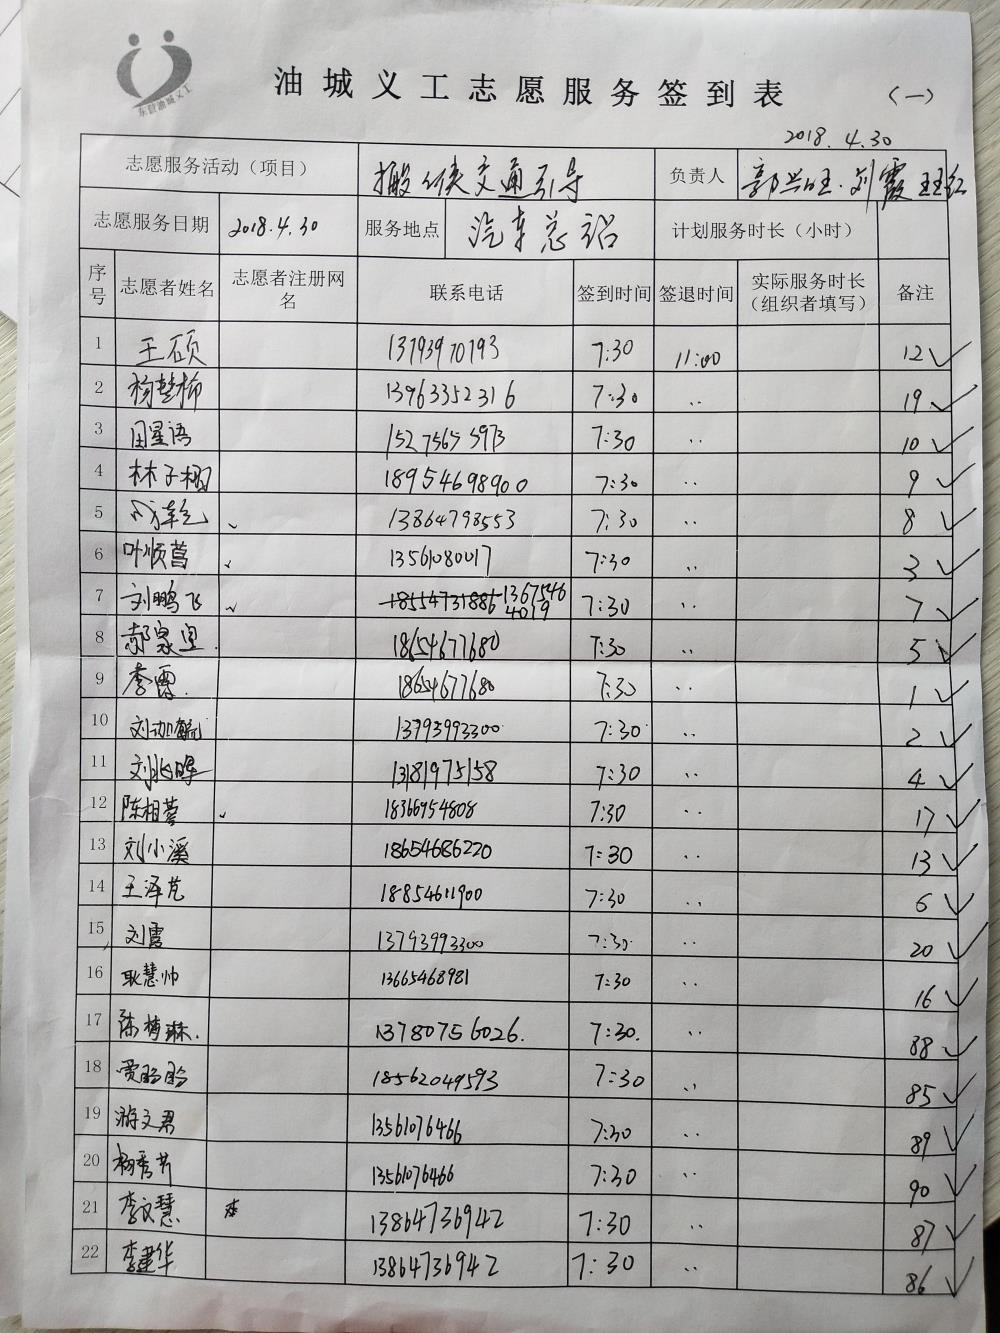 东营油城义工
油城义工志愿服务签到表 (一)
2018.4.30
志愿服务活动（项目） 搬倒侠交通引导 负责人 郭兴旺.刘霞 王红
志愿服务日期 2018.4.30 服务地点 汽车总站 计划服务时长（小时）
序号 志愿者姓名 志愿者注册网名 联系电话 签到时间 签退时间 实际服务时长（组织者填写） 备注
1 王硕 13793970193 7:30 11:00 12 ✓
2 13963352316 7:30 .. 19 ✓
3 田星语 15275655973 7:30 .. 10 ✓
4 林子栩 18954698900 7:30 .. 9 ✓
5 13864798553 7:30 .. 8 ✓
6 叶顺菖 13561080017 7:30 .. 3 ✓
7 刘鹏飞 18554731886 13675464019 7:30 .. 7 ✓
8 郝家宜 18654677680 7:30 .. 5 ✓
9 李雷 18654677680 7:30 .. 1 ✓
10 13793993300 7:30 .. 2 ✓
11 刘兆晖 13181975158 7:30 .. 4 ✓
12 陈相蓉 18366954808 7:30 .. 17 ✓
13 刘小溪 18654686220 7:30 .. 13 ✓
14 王泽芃 18854611900 7:30 .. 6 ✓
15 刘霞 13793993300 7:30 .. 20 ✓
16 耿慧帅 13665468981 7:30 .. 16 ✓
17 陈梅琳. 13780756026. 7:30. .. 88 ✓
18 贾盼盼 18562049593 7:30 .. 85 ✓
19 游文君 13561076466 7:30 .. 89 ✓
20 杨秀芹 13561076466 7:30 .. 90 ✓
21 李文慧 13864736942 7:30 .. 87 ✓
22 李建华 13864736942 7:30 .. 86 ✓